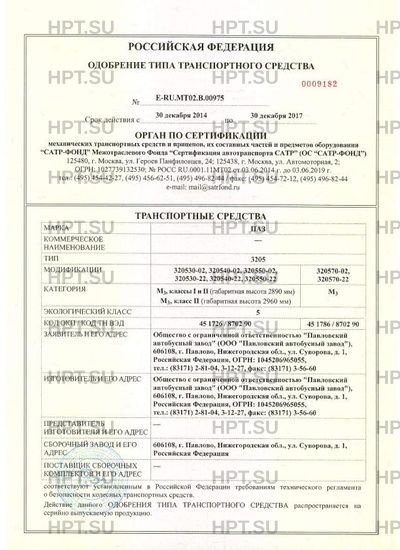 РОССИЙСКАЯ ФЕДЕРАЦИЯ
ОДОБРЕНИЕ ТИПА ТРАНСПОРТНОГО СРЕДСТВА
0009182
№ E-RU.MT02.B.00975
Срок действия с 30 декабря 2014 по 30 декабря 2017
ОРГАН ПО СЕРТИФИКАЦИИ
механических транспортных средств и прицепов, их составных частей и предметов оборудования
"САТР-ФОНД" Межотраслевого Фонда "Сертификация автотранспорта САТР" (ОС "САТР-ФОНД")
125480, г. Москва, ул. Героев Панфиловцев, 24; 125438, г. Москва, ул. Автомоторная, 2;
ОГРН: 1027739132530; № РОСС RU.0001.11МТ02 от 03.06.2014 г. до 03.06.2019 г.
тел.: (495) 454-42-27, (495) 456-62-51, (495) 496-82-44 / факс: (495) 454-72-12, (495) 496-82-44
e-mail: mail@satrfond.ru
ТРАНСПОРТНЫЕ СРЕДСТВА
МАРКА ПАЗ
КОММЕРЧЕСКОЕ НАИМЕНОВАНИЕ —
ТИП 3205
МОДИФИКАЦИИ 320530-02, 320540-02, 320550-02, 320570-02,
320530-22, 320540-22, 320550-22 320570-22
КАТЕГОРИЯ М3, классы I и II (габаритная высота 2890 мм) М3
М3, класс II (габаритная высота 2960 мм)
ЭКОЛОГИЧЕСКИЙ КЛАСС 5
КОД ОКП / КОД ТН ВЭД 45 1726 / 8702 90 45 1786 / 8702 90
ЗАЯВИТЕЛЬ И ЕГО АДРЕС Общество с ограниченной ответственностью "Павловский
автобусный завод" (ООО "Павловский автобусный завод"),
606108, г. Павлово, Нижегородская обл., ул. Суворова, д. 1,
Российская Федерация, ОГРН: 1045206965055,
тел.: (83171) 2-81-04, 3-12-27, факс: (83171) 3-56-60
ИЗГОТОВИТЕЛЬ И ЕГО АДРЕС Общество с ограниченной ответственностью "Павловский
автобусный завод" (ООО "Павловский автобусный завод"),
606108, г. Павлово, Нижегородская обл., ул. Суворова, д. 1,
Российская Федерация, ОГРН: 1045206965055,
тел.: (83171) 2-81-04, 3-12-27, факс: (83171) 3-56-60
ПРЕДСТАВИТЕЛЬ ИЗГОТОВИТЕЛЯ И ЕГО АДРЕС —
СБОРОЧНЫЙ ЗАВОД И ЕГО АДРЕС 606108, г. Павлово, Нижегородская обл., ул. Суворова, д. 1,
Российская Федерация
ПОСТАВЩИК СБОРОЧНЫХ КОМПЛЕКТОВ И ЕГО АДРЕС —
соответствуют установленным в Российской Федерации требованиям технического регламента
о безопасности колесных транспортных средств.
Действие данного ОДОБРЕНИЯ ТИПА ТРАНСПОРТНОГО СРЕДСТВА распространяется на
серийно выпускаемую продукцию.
HPT.SU